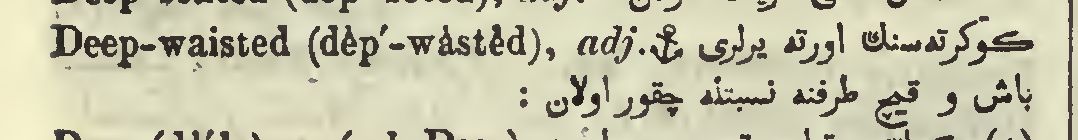 Deep-waisted (dèp′-wàstèd), adj. ⚓ كوكرته‌سنك اورته يرلرى
باش و قيچ طرفنه نسبتله چقور اولان :